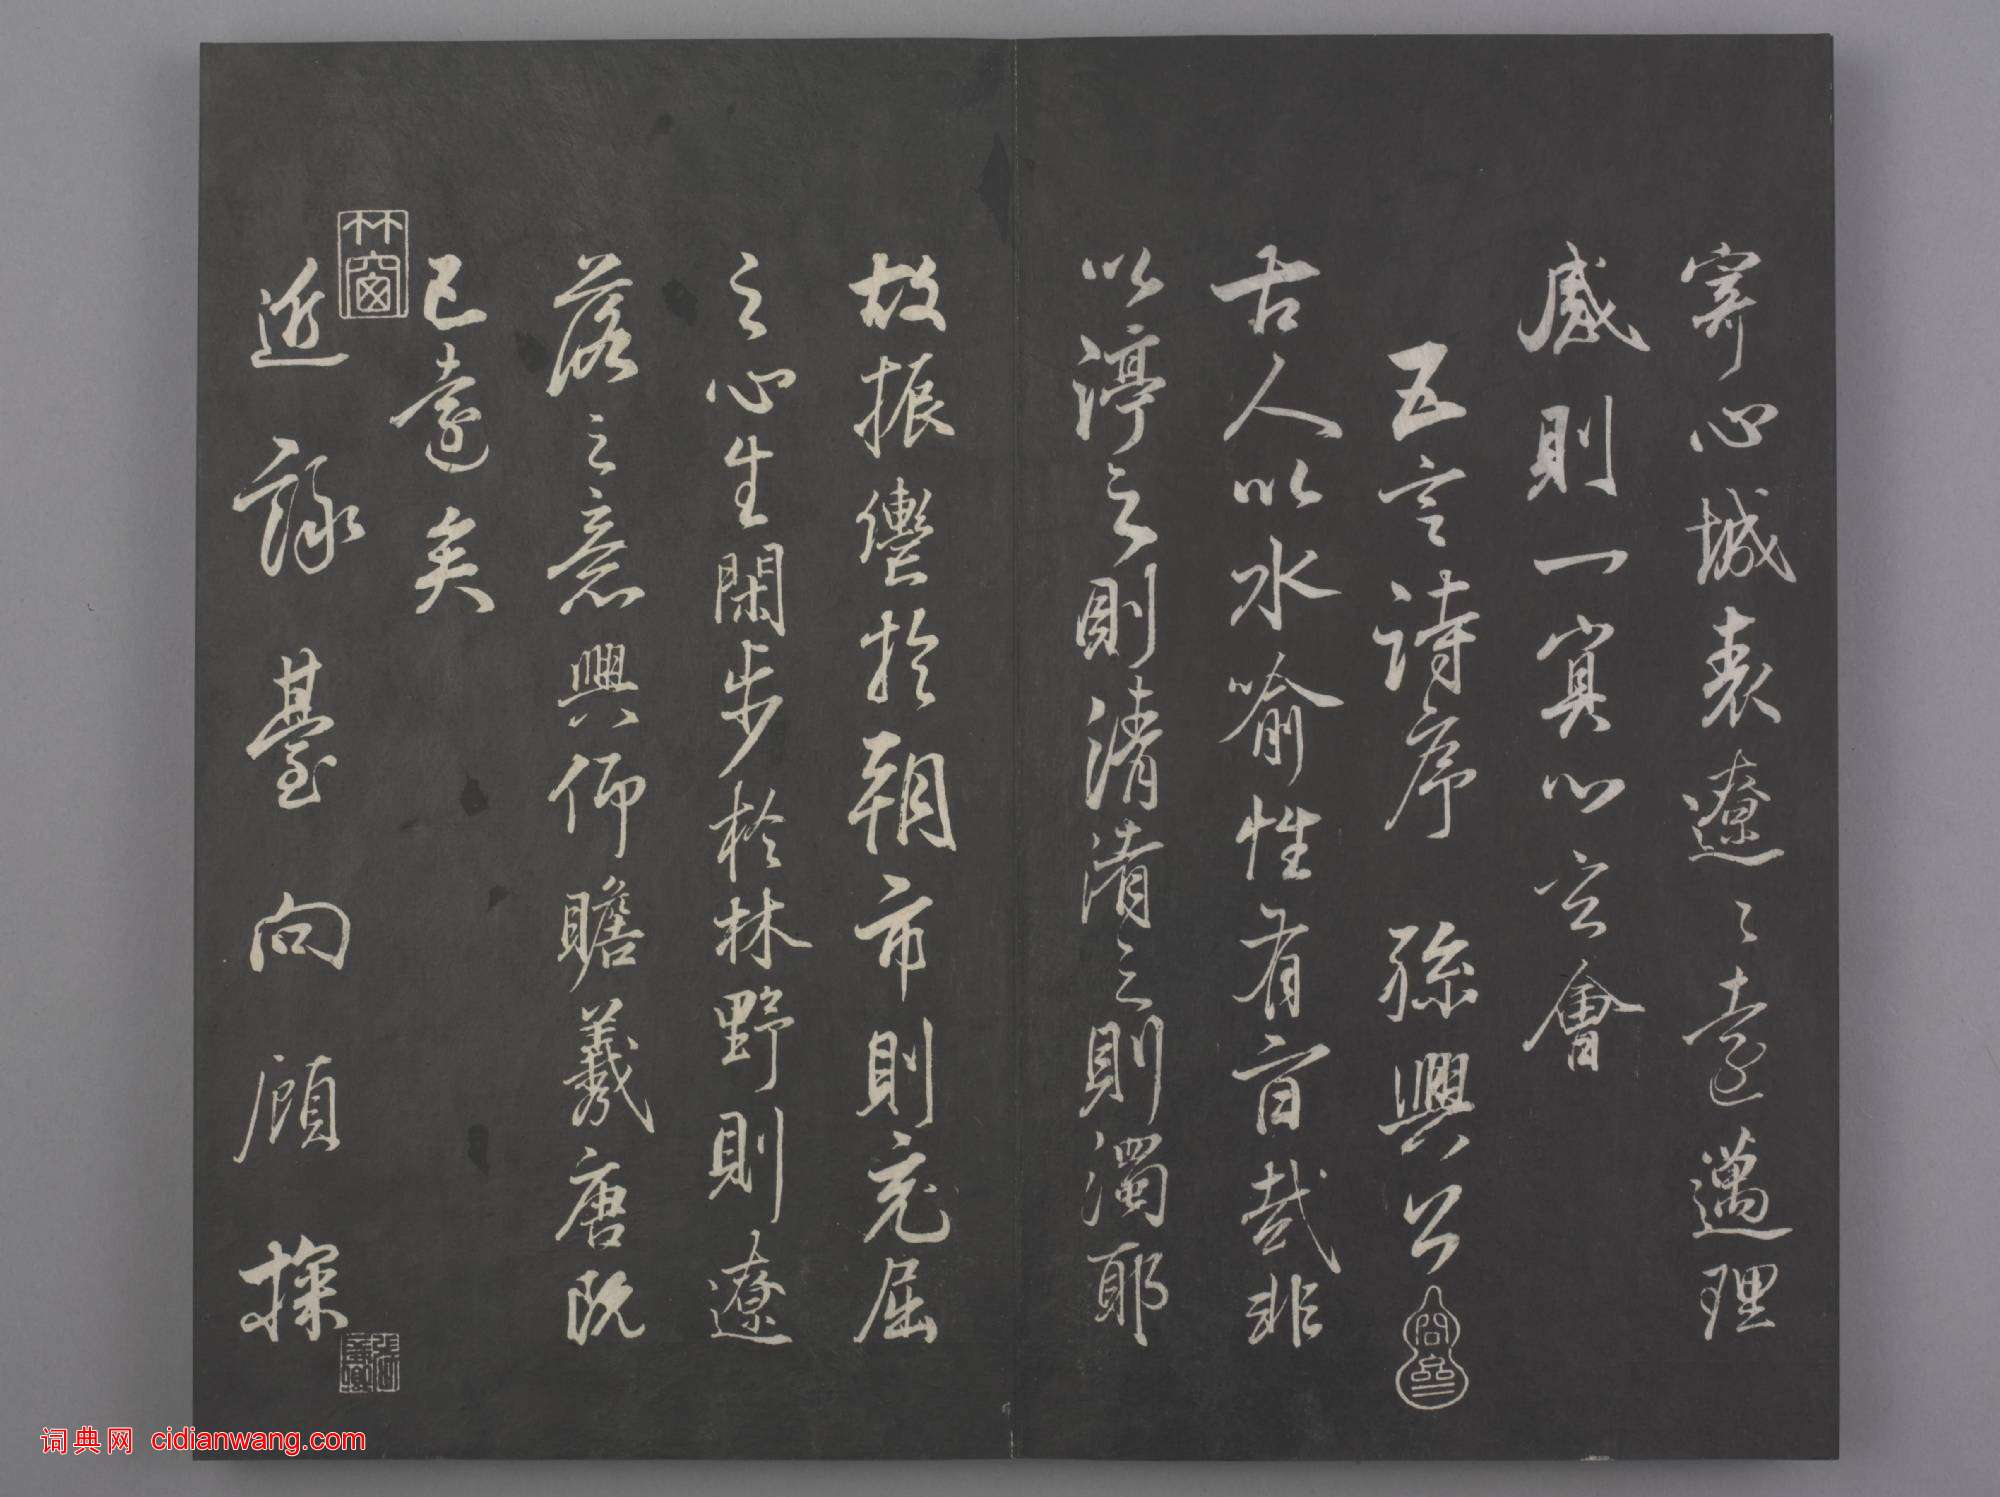 寄心城表遼々遠邁理
感則一冥心玄會
五言詩序　孫興公
古人以水喻性有旨哉非
以渟之則清淆之則濁耶
故振轡於朝市則充屈
之心生閑步於林野則遼
落之意興仰瞻羲唐既
已遠矣
近詠臺向顧探
竹窗
词典网 cidianwang.com